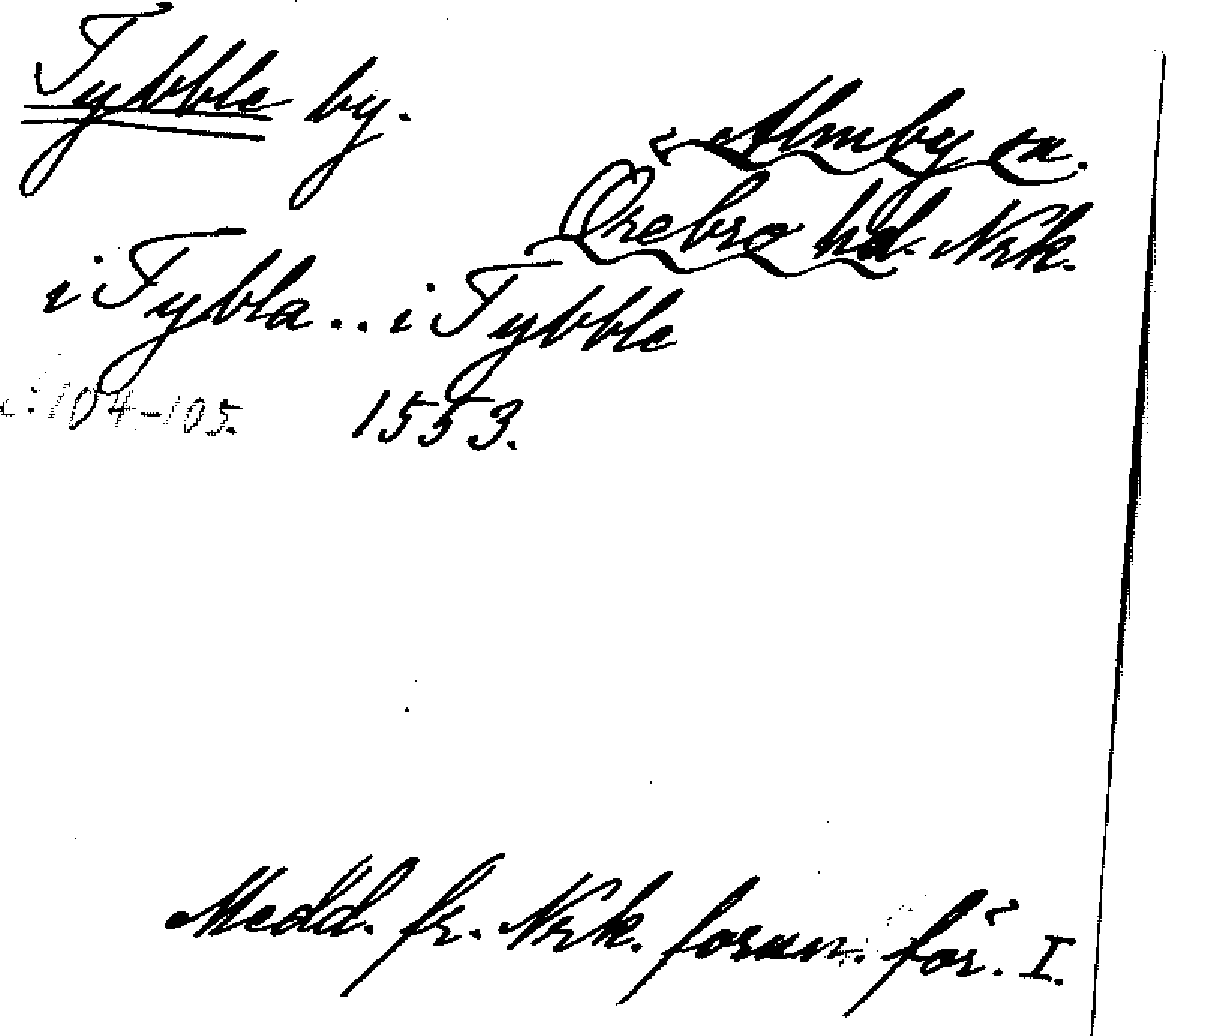 Tybble by.
Almby sn.
Örebro hd. Nrk.
i Tybla .. i Tybble
: 104-105. 1553.
Medd. fr. Nrk. fornm. för. I.